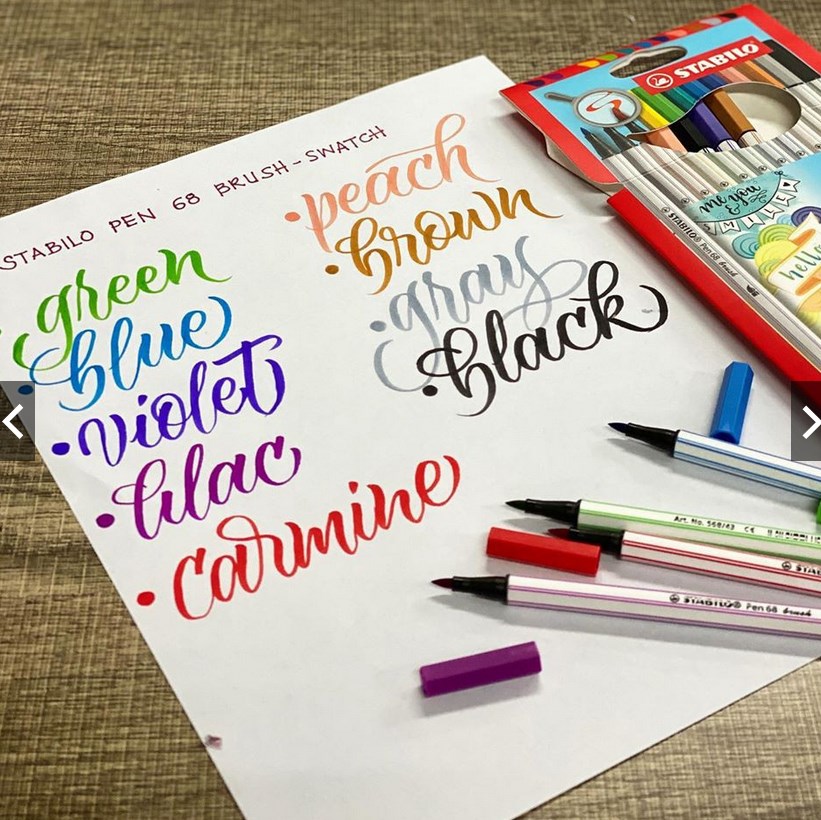 STABILO PEN 68 BRUSH-SWATCH
•green
•blue
•violet
•lilac
•carmine
•peach
•brown
•gray
•black
STABILO
me you
&
SMILE
STABILO® Pen 68 brush
hello
Art. No. 568/43 CE
STABILO® Pen 68 brush